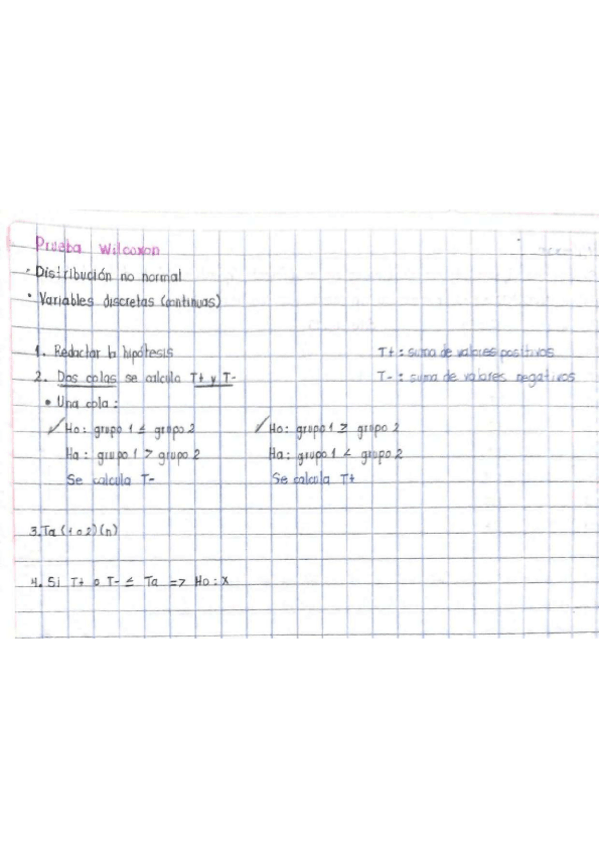 Prueba Wilcoxon
· Distribución no normal
· Variables discretas (continuas)
1. Redactar la hipótesis
T+ : suma de valores positivos
2. Dos colas se calcula T+ y T-
T- : suma de valores negativos
• Una cola :
✓ Ho : grupo 1 ≤ grupo 2
Ha : grupo 1 > grupo 2
Se calcula T-
✓ Ho : grupo 1 ≥ grupo 2
Ha : grupo 1 < grupo 2
Se calcula T+
3. Ta (1 o 2) (n)
4. Si T+ o T- ≤ Ta => Ho : X